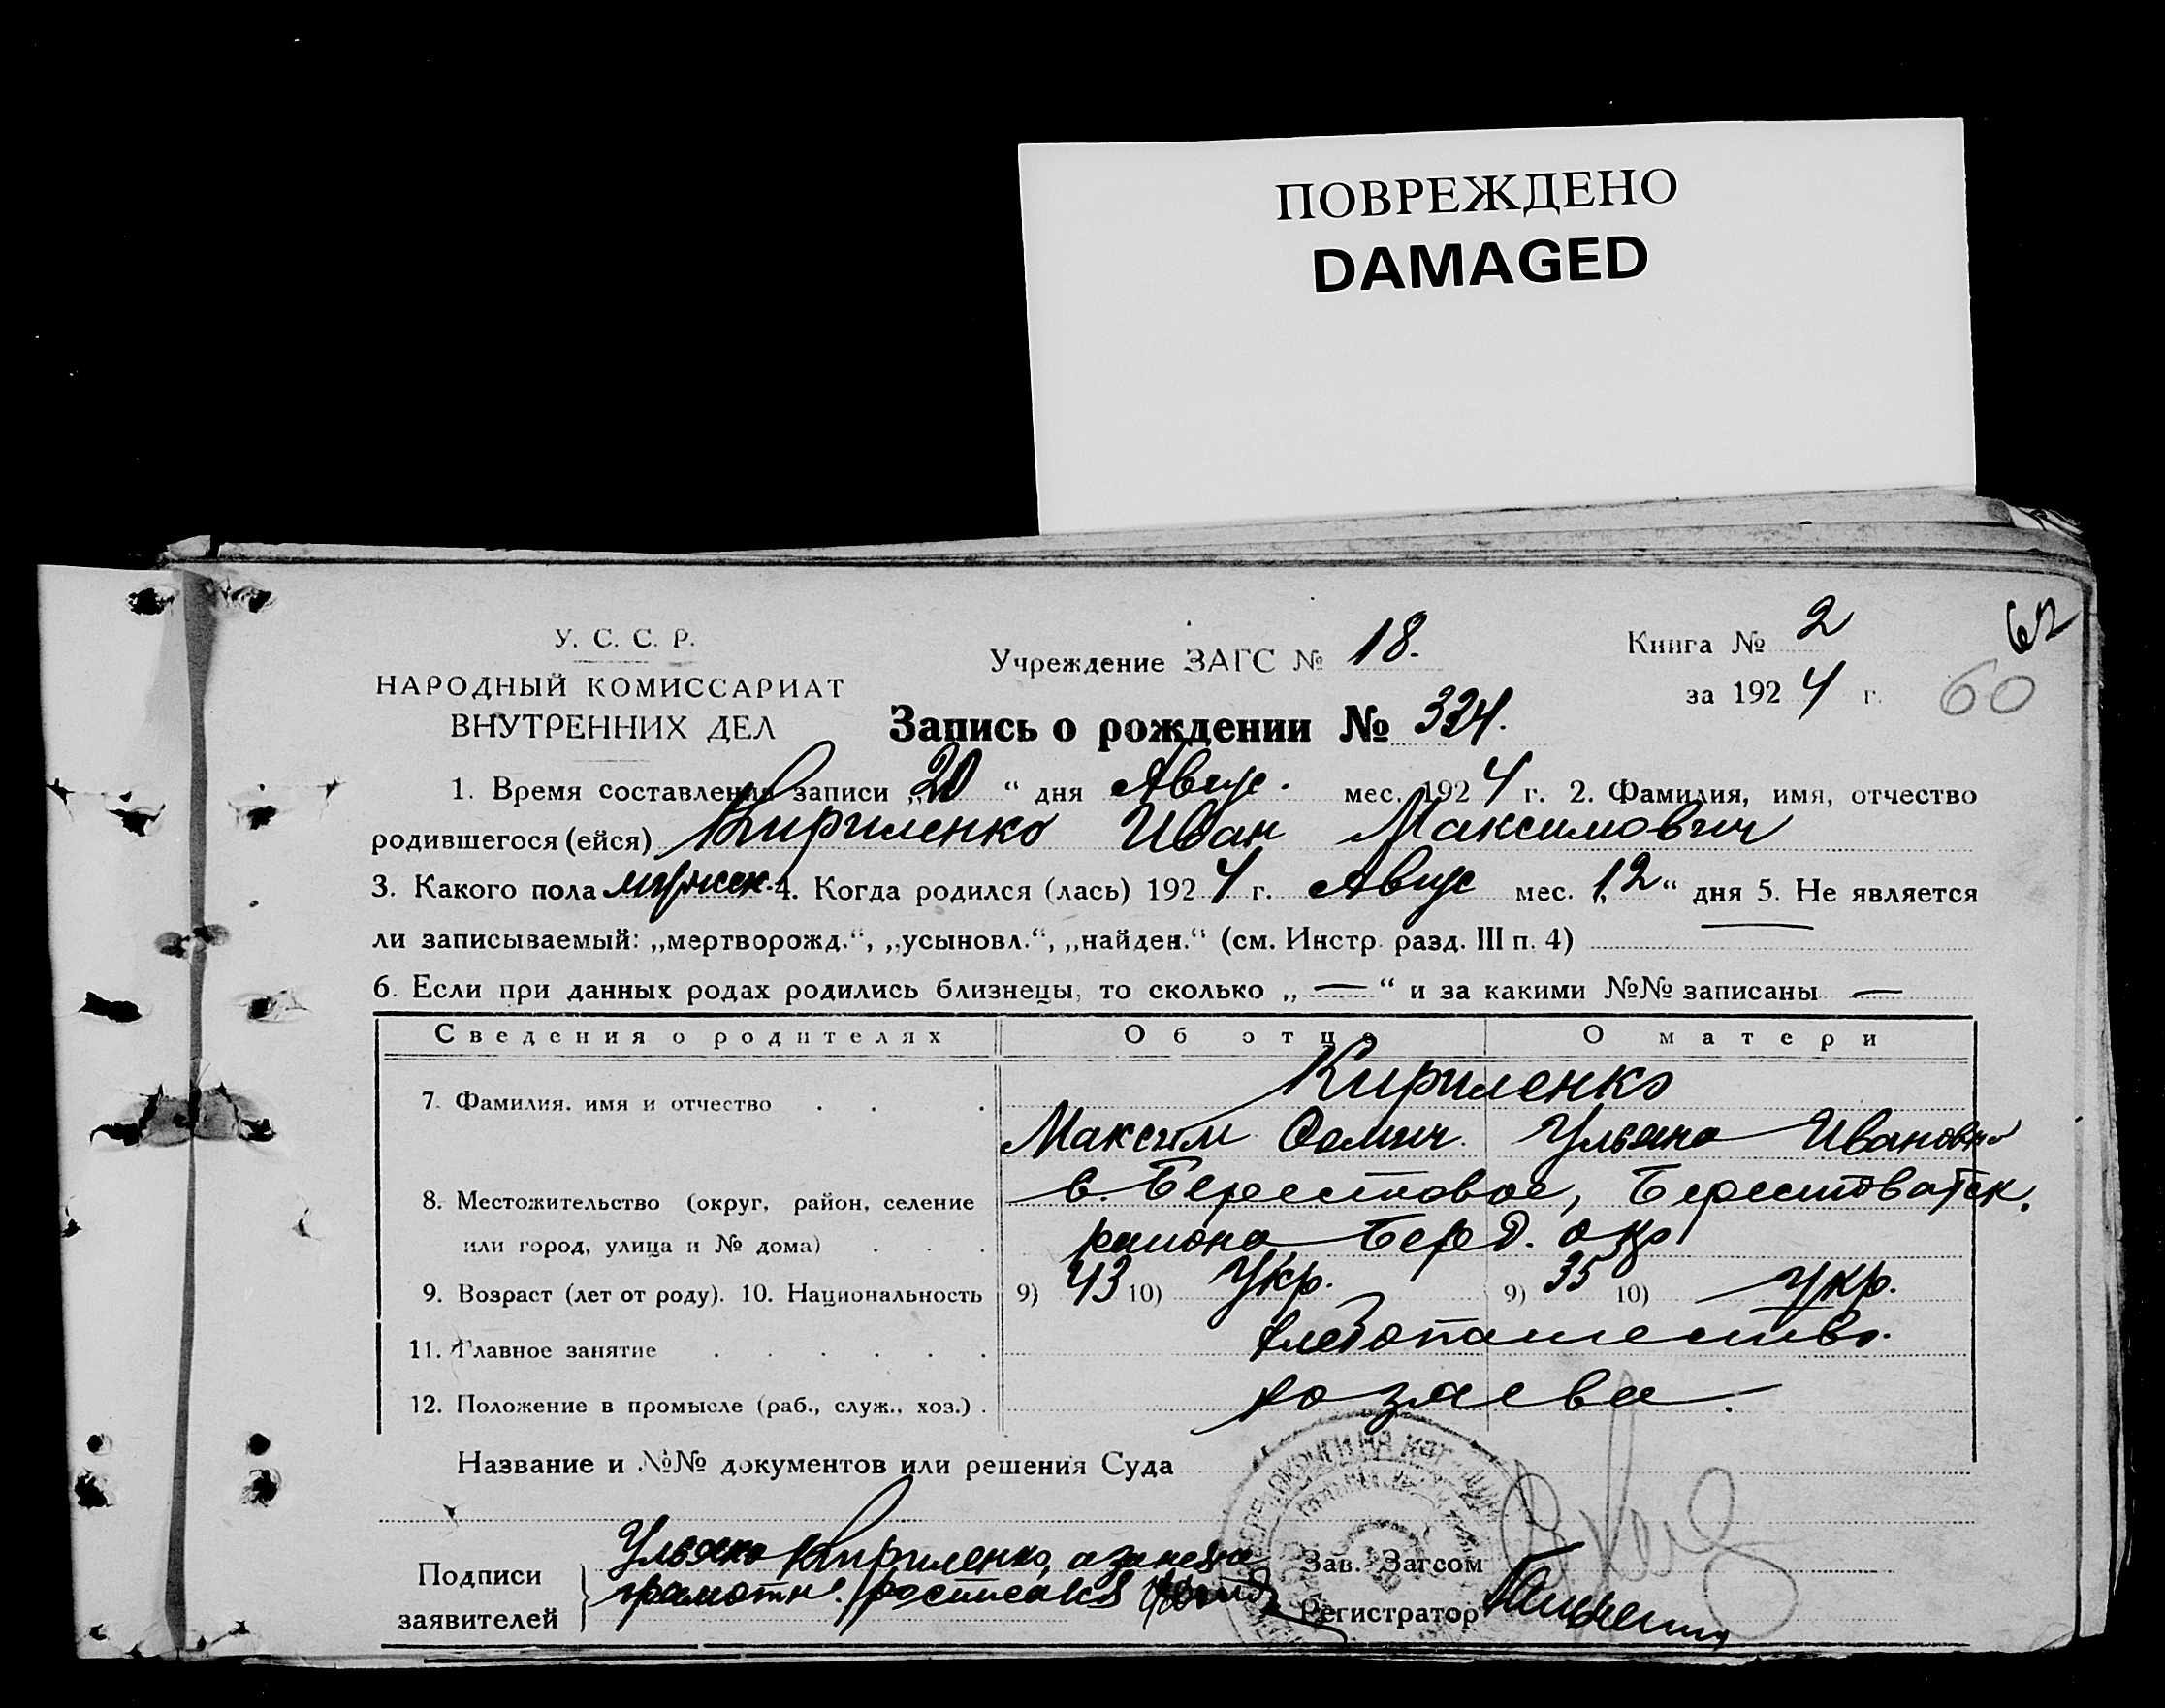 ПОВРЕЖДЕНО
DAMAGED
62
У. С. С. Р.
НАРОДНЫЙ КОМИССАРИАТ
ВНУТРЕННИХ ДЕЛ
Учреждение ЗАГС № 18.
Книга № 2
за 1924 г.
60
Запись о рождении № 324.
1. Время составления записи „20“ дня Авгус. мес. 1924 г. 2. Фамилия, имя, отчество
родившегося (ейся) Кириленко Иван Максимович
3. Какого пола мужск. 4. Когда родился (лась) 1924 г. Авгус мес. „12“ дня 5. Не является
ли записываемый: „мертворожд.“, „усыновл.“, „найден.“ (см. Инстр. разд. III п. 4) —
6. Если при данных родах родились близнецы, то сколько „—“ и за какими №№ записаны —
Сведения о родителях Об отце О матери
7. Фамилия, имя и отчество . . . Кириленко
Максим Ульяна Ивановна
8. Местожительство (округ, район, селение в. Берестовое, Берестоватск.
или город, улица и № дома) . . . района Берд. окр
9. Возраст (лет от роду). 10. Национальность 9) 43 10) Укр. 9) 35 10) Укр.
11. Главное занятие . . . . . . хлебопашество.
12. Положение в промысле (раб., служ., хоз.) . хозяева.
Название и №№ документов или решения Суда
Подписи
заявителей
Ульяна Кириленко, а за нея
грамотн. росписався
Зав. Загсом
Регистратор